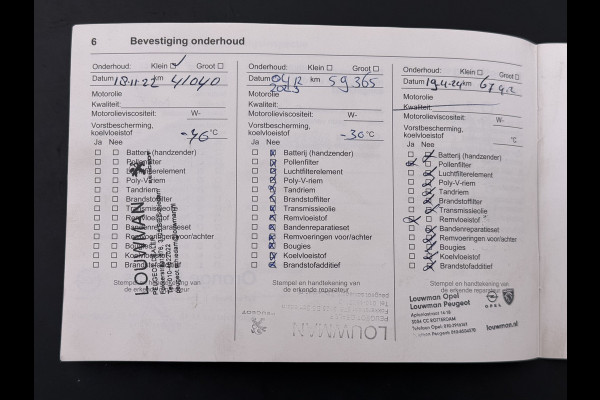 6 Bevestiging onderhoud
Onderhoud: Klein Groot
Datum 18.11.22 km 41040
Motorolie
Kwaliteit:
Motorolieviscositeit: W-
Vorstbescherming,
koelvloeistof °C
Ja Nee
Batterij (handzender)
Pollenfilter
Luchtfilterelement
Poly-V-riem
Tandriem
Brandstoffilter
Transmissieolie
Remvloeistof
Bandenreparatieset
Remvoeringen voor/achter
Bougies
Koelvloeistof
Brandstofadditief
Stempel en handtekening van
de erkende reparateur
LOUWMAN
Onderhoud: Klein Groot
Datum 04/12 2023 km 59365
Motorolie
Kwaliteit:
Motorolieviscositeit: W-
Vorstbescherming,
koelvloeistof -30 °C
Ja Nee
Batterij (handzender)
Pollenfilter
Luchtfilterelement
Poly-V-riem
Tandriem
Brandstoffilter
Transmissieolie
Remvloeistof
Bandenreparatieset
Remvoeringen voor/achter
Bougies
Koelvloeistof
Brandstofadditief
Stempel en handtekening van
de erkende reparateur
LOUWMAN
PEUGEOT
Onderhoud: Klein Groot
Datum km
Motorolie
Kwaliteit:
Motorolieviscositeit: W-
Vorstbescherming,
koelvloeistof °C
Ja Nee
Batterij (handzender)
Pollenfilter
Luchtfilterelement
Poly-V-riem
Tandriem
Brandstoffilter
Transmissieolie
Remvloeistof
Bandenreparatieset
Remvoeringen voor/achter
Bougies
Koelvloeistof
Brandstofadditief
Stempel en handtekening van
de erkende reparateur
Louwman Opel
Louwman Peugeot
OPEL
louwman.nl